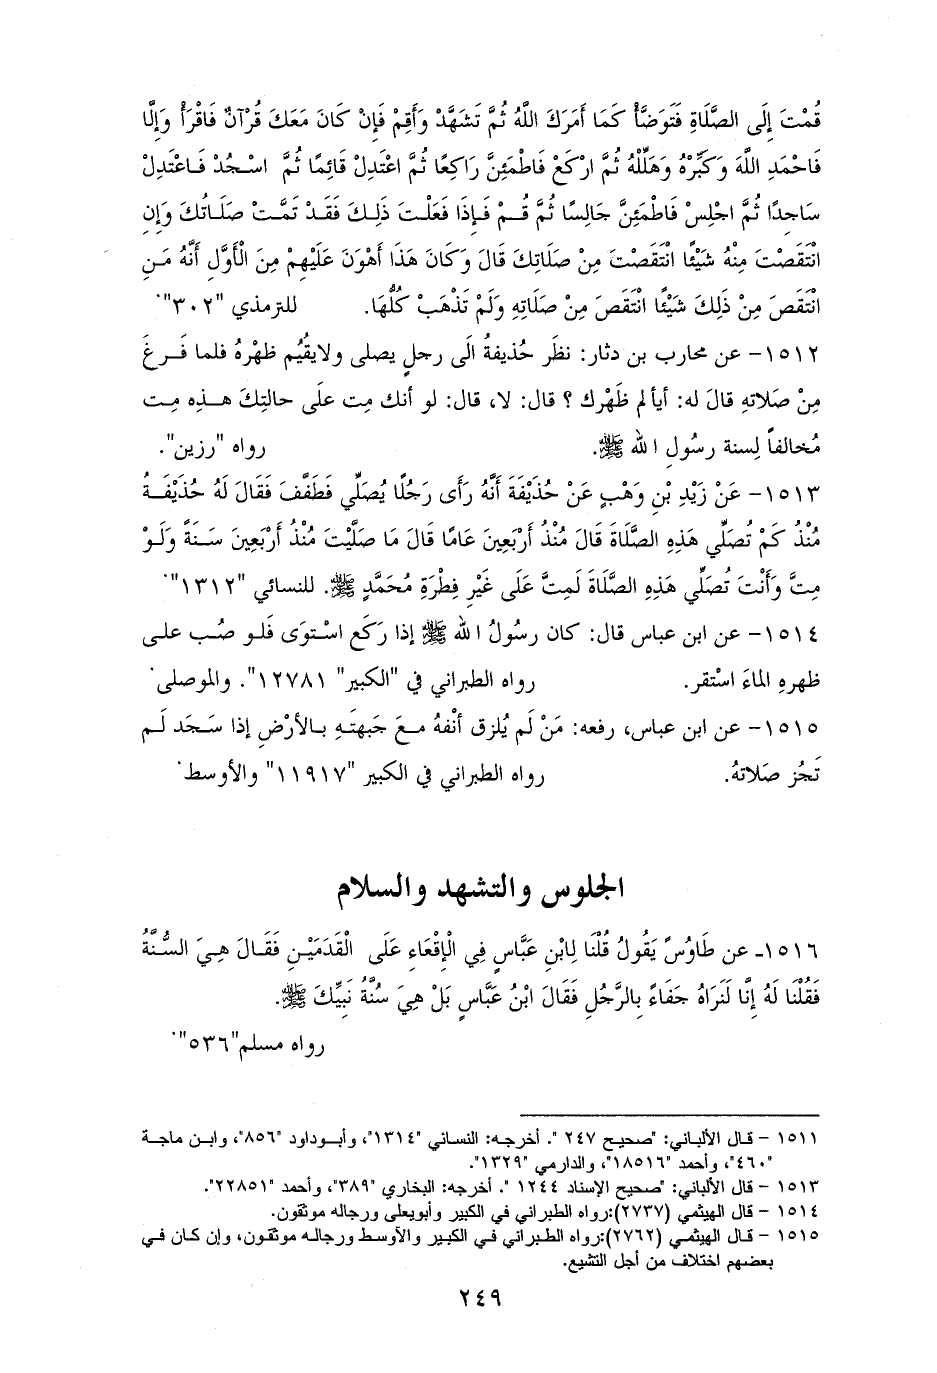 قُمْتَ إِلَى الصَّلَاةِ فَتَوَضَّأْ كَمَا أَمَرَكَ اللَّهُ ثُمَّ تَشَهَّدْ وَأَقِمْ فَإِنْ كَانَ مَعَكَ قُرْآنٌ فَاقْرَأْ وَإِلَّا
فَاحْمَدِ اللَّهَ وَكَبِّرْهُ وَهَلِّلْهُ ثُمَّ ارْكَعْ فَاطْمَئِنَّ رَاكِعًا ثُمَّ اعْتَدِلْ قَائِمًا ثُمَّ اسْجُدْ فَاعْتَدِلْ
سَاجِدًا ثُمَّ اجْلِسْ فَاطْمَئِنَّ جَالِسًا ثُمَّ قُمْ فَإِذَا فَعَلْتَ ذَلِكَ فَقَدْ تَمَّتْ صَلَاتُكَ وَإِنِ
انْتَقَصْتَ مِنْهُ شَيْئًا انْتَقَصْتَ مِنْ صَلَاتِكَ قَالَ وَكَانَ هَذَا أَهْوَنَ عَلَيْهِمْ مِنَ الْأَوَّلِ أَنَّهُ مَنِ
انْتَقَصَ مِنْ ذَلِكَ شَيْئًا انْتَقَصَ مِنْ صَلَاتِهِ وَلَمْ تَذْهَبْ كُلُّهَا. للترمذي "٣٠٢".
١٥١٢- عن محارب بن دثار: نظَر حُذيفةُ الَى رجلٍ يصلى ولايقُيُم ظهْرهُ فلما فَرغَ
مِنْ صَلاتهِ قالَ له: أيألم ظَهْرك ؟ قال: لا، قال: لو أنك مِت علَى حالتِكَ هذه مِت
مُخالفاً لِسنة رسُولِ الله ﷺ. رواه "رزين".
١٥١٣- عَنْ زَيْدِ بْنِ وَهْبٍ عَنْ حُذَيْفَةَ أَنَّهُ رَأَى رَجُلًا يُصَلِّي فَطَفَّفَ فَقَالَ لَهُ حُذَيْفَةُ
مُنْذُ كَمْ تُصَلِّي هَذِهِ الصَّلَاةَ قَالَ مُنْذُ أَرْبَعِينَ عَامًا قَالَ مَا صَلَّيْتَ مُنْذُ أَرْبَعِينَ سَنَةً وَلَوْ
مِتَّ وَأَنْتَ تُصَلِّي هَذِهِ الصَّلَاةَ لَمِتَّ عَلَى غَيْرِ فِطْرَةِ مُحَمَّدٍ ﷺ. للنسائي "١٣١٢".
١٥١٤- عن ابن عباس قال: كان رسُولُ الله ﷺ إذا ركَع اسْتوَى فَلو صُب على
ظهرهِ الماءَ اسْتقر. رواه الطبراني في "الكبير" ١٢٧٨١". والموصلى.
١٥١٥- عن ابن عباس، رفعه: مَنْ لَم يُلزق أنْفهُ معَ جَبهتَهِ بالأرْضِ إذا سَجَد لَم
تَجُز صَلاتهُ. رواه الطبراني في الكبير "١١٩١٧" والأوسط.
الجلوس والتشهد والسلام
١٥١٦- عن طَاوُسً يَقُولُ قُلْنَا لِابْنِ عَبَّاسٍ فِي الْإِقْعَاءِ عَلَى الْقَدَمَيْنِ فَقَالَ هِيَ السُّنَّةُ
فَقُلْنَا لَهُ إِنَّا لَنَرَاهُ جَفَاءً بِالرَّجُلِ فَقَالَ ابْنُ عَبَّاسٍ بَلْ هِيَ سُنَّةُ نَبِيِّكَ ﷺ.
رواه مسلم"٥٣٦".
١٥١١ - قال الألباني: "صحيح ٢٤٧ ". أخرجه: النسائي "١٣١٤"، وأبوداود "٨٥٦"، وابن ماجة
"٤٦٠"، وأحمد "١٨٥١٦"، والدارمي "١٣٢٩".
١٥١٣ - قال الألباني: "صحيح الإسناد ١٢٤٤ ". أخرجه: البخاري "٣٨٩"، وأحمد "٢٢٨٥١".
١٥١٤ - قال الهيثمي (٢٧٣٧):رواه الطبراني في الكبير وأبويعلى ورجاله موثقون.
١٥١٥ - قال الهيثمي (٢٧٦٢):رواه الطبراني في الكبير والأوسط ورجاله موثقون، وإن كان في
بعضهم اختلاف من أجل التشيع.
٢٤٩